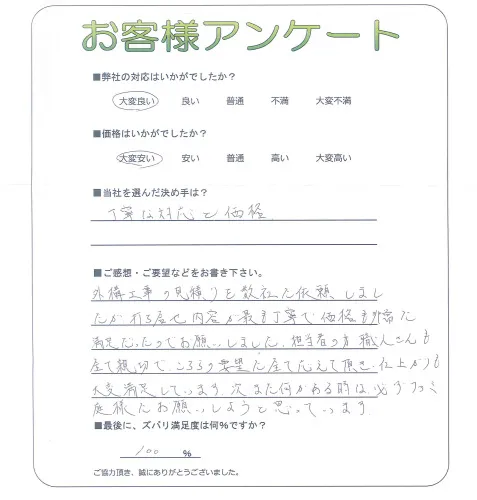 お客様アンケート
■弊社の対応はいかがでしたか?
大変良い 良い 普通 不満 大変不満
■価格はいかがでしたか?
大変安い 安い 普通 高い 大変高い
■当社を選んだ決め手は?
丁寧な対応と価格
■ご感想・ご要望などをお書き下さい。
外構工事の見積りを数社に依頼しまし
たが 内容が最も丁寧で価格も非常に
満足だったのでお願いしました。担当者の方 職人さんも
全て親切で、こちらの要望に全て応えて頂き、仕上がりも
大変満足しています。次また何かある時は必ず
庭様にお願いしようと思っています。
■最後に、ズバリ満足度は何%ですか?
100 %
ご協力頂き、誠にありがとうございました。